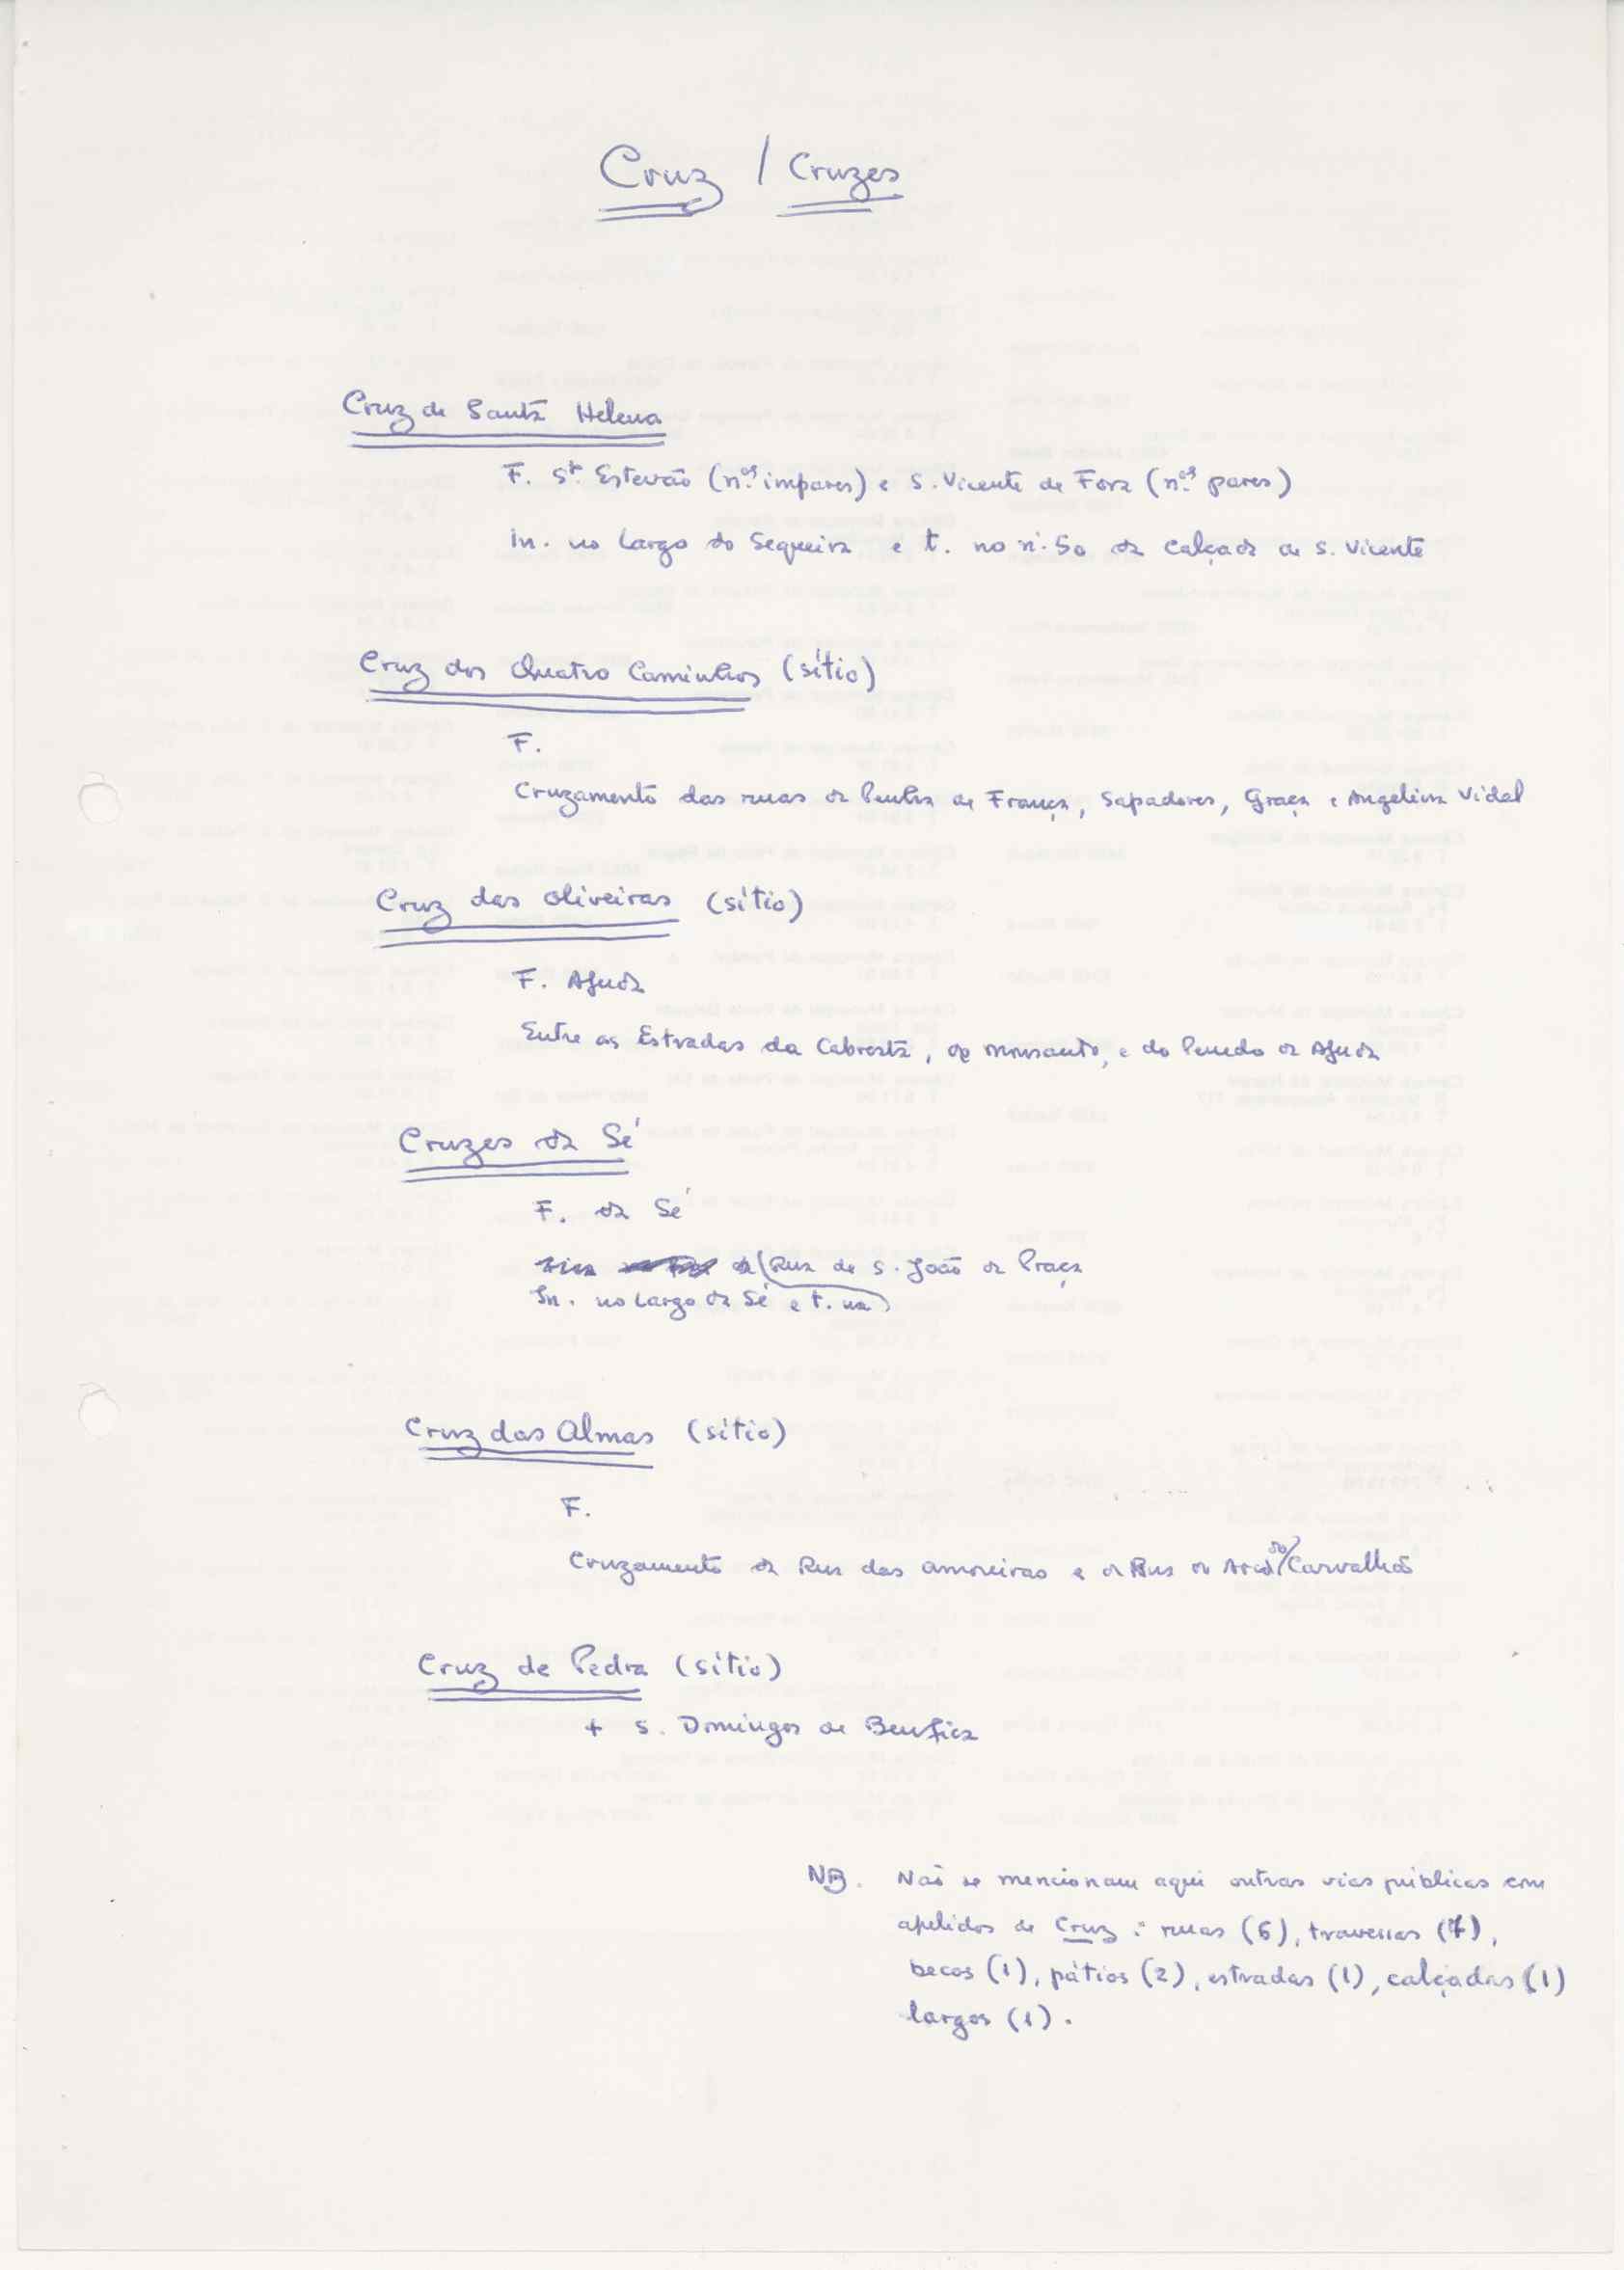 Cruz / Cruzes
Cruz de Santa Helena
F. Stº. Estevão (nºs. impares) e S. Vicente de Fora (nºs. pares)
In. no Largo do Sequeira e t. no nº. 50 da Calçada de S. Vicente
Cruz dos Quatro Caminhos (sítio)
F.
Cruzamento das ruas da Penha de França, Sapadores, Graça e Angelina Vidal
Cruz das Oliveiras (sítio)
F. Ajuda
Entre as Estradas da Cabresta, de Monsanto, e do Penedo da Ajuda
Cruzes da Sé
F. da Sé
Rua de S. João da Praça
In. no Largo da Sé e t. na
Cruz das Almas (sítio)
F.
Cruzamento da Rua das Amoreiras e da Rua do Arco do Carvalhão
Cruz de Pedra (sítio)
+ S. Domingos de Benfica
NB. Não se mencionam aqui outras vias públicas com
apelidos de Cruz: ruas (6), travessas (7),
becos (1), pátios (2), estradas (1), calçadas (1)
largos (1).